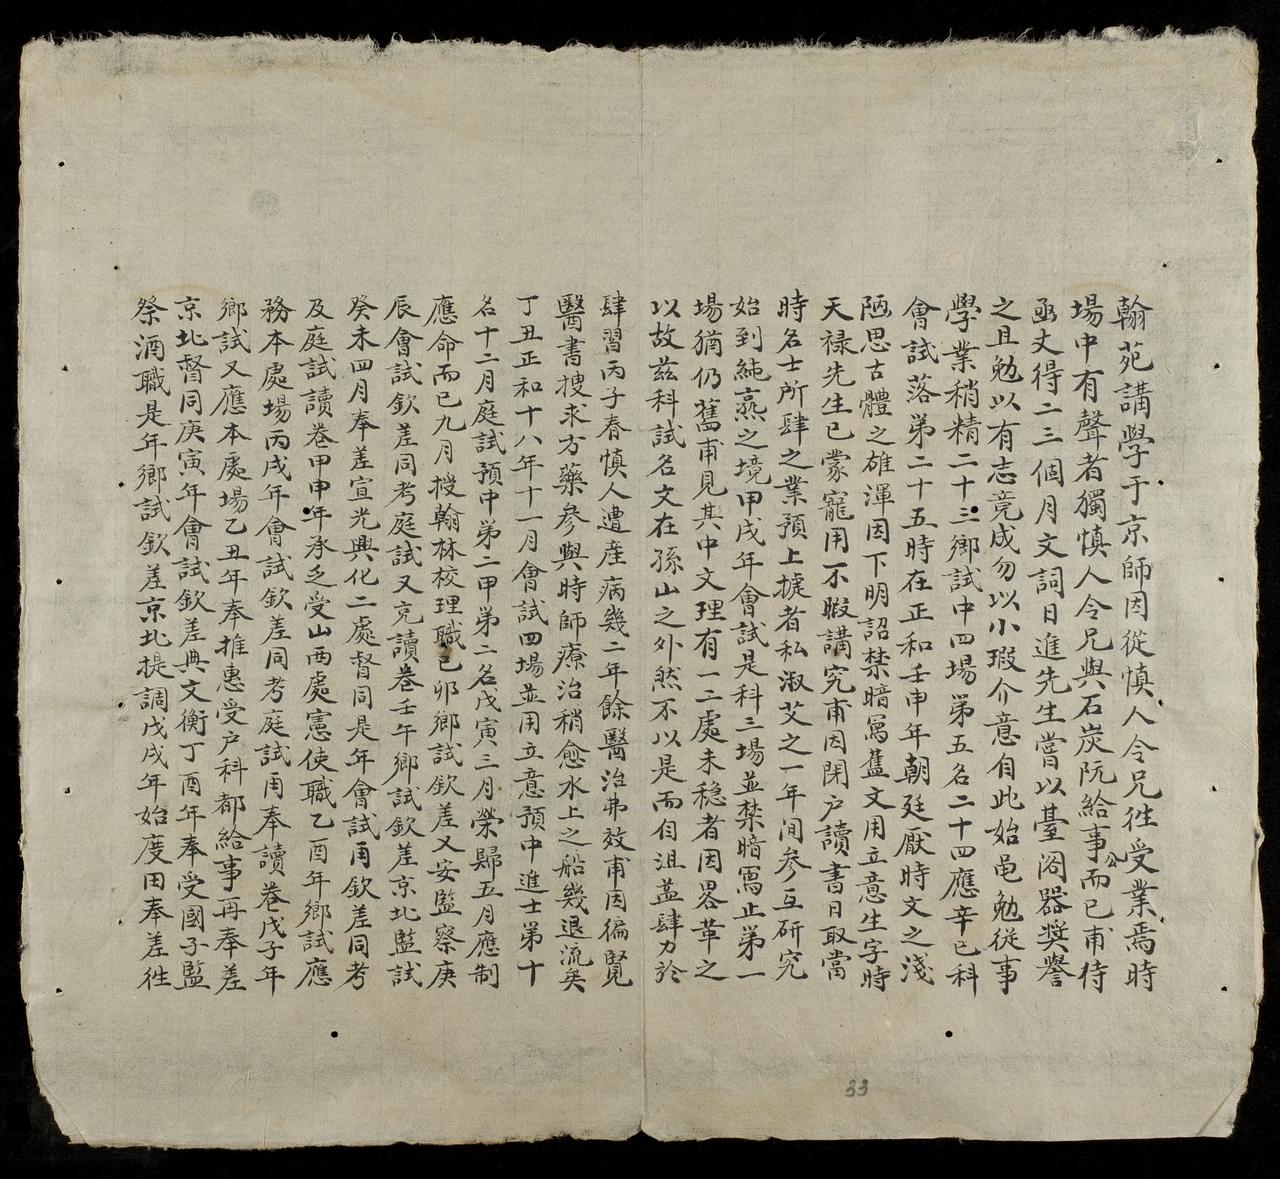 翰苑講學于京師因從慎人令兄徃受業焉時
場中有聲者獨慎人令兄與石炭阮給事公而已甫待
函丈得二三個月文詞日進先生嘗以臺閣器奬譽
之且勉以有志竟成勿以小瑕介意自此始黽勉從事
學業稍精二十三鄉試中四場第五名二十四應辛巳科
會試落第二十五時在正和壬申年朝廷厭時文之淺
陋思古體之雄渾因下明詔禁暗寫舊文用立意生字時
天禄先生已蒙寵用不暇講究甫因閉户讀書日取當
時名士所肆之業預上㨗者私淑艾之一年间參互研究
始到純熟之境甲戌年會試是科三場並禁暗寫止第一
場猶仍舊甫見其中文理有一二處未穏者因畧革之
以故兹科試名文在孫山之外然不以是而自沮益肆力於
肆習丙子春慎人遭産病幾二年餘醫治弗效甫因徧覽
醫書搜求方藥參與時師療治稍愈水上之船幾退流矣
丁丑正和十八年十一月會試四場並用立意預中進士第十
名十二月庭試預中第二甲第二名戊寅三月榮歸五月應制
應命而已九月授翰林校理職己卯鄉試欽差乂安監察庚
辰會試欽差同考庭試又充讀卷壬午鄉試欽差京北監試
癸未四月奉差宣光興化二處督同是年會試再欽差同考
及庭試讀卷甲申年承乏受山西處憲使職乙酉年鄉試應
務本處場丙戌年會試欽差同考庭試再奉讀卷戊子年
鄉試又應本處場乙丑年奉推惠受户科都給事再奉差
京北督同庚寅年會試欽差典文衡丁酉年奉受國子監
祭酒職是年鄉試欽差京北提調戊戌年始度田奉差徃
33